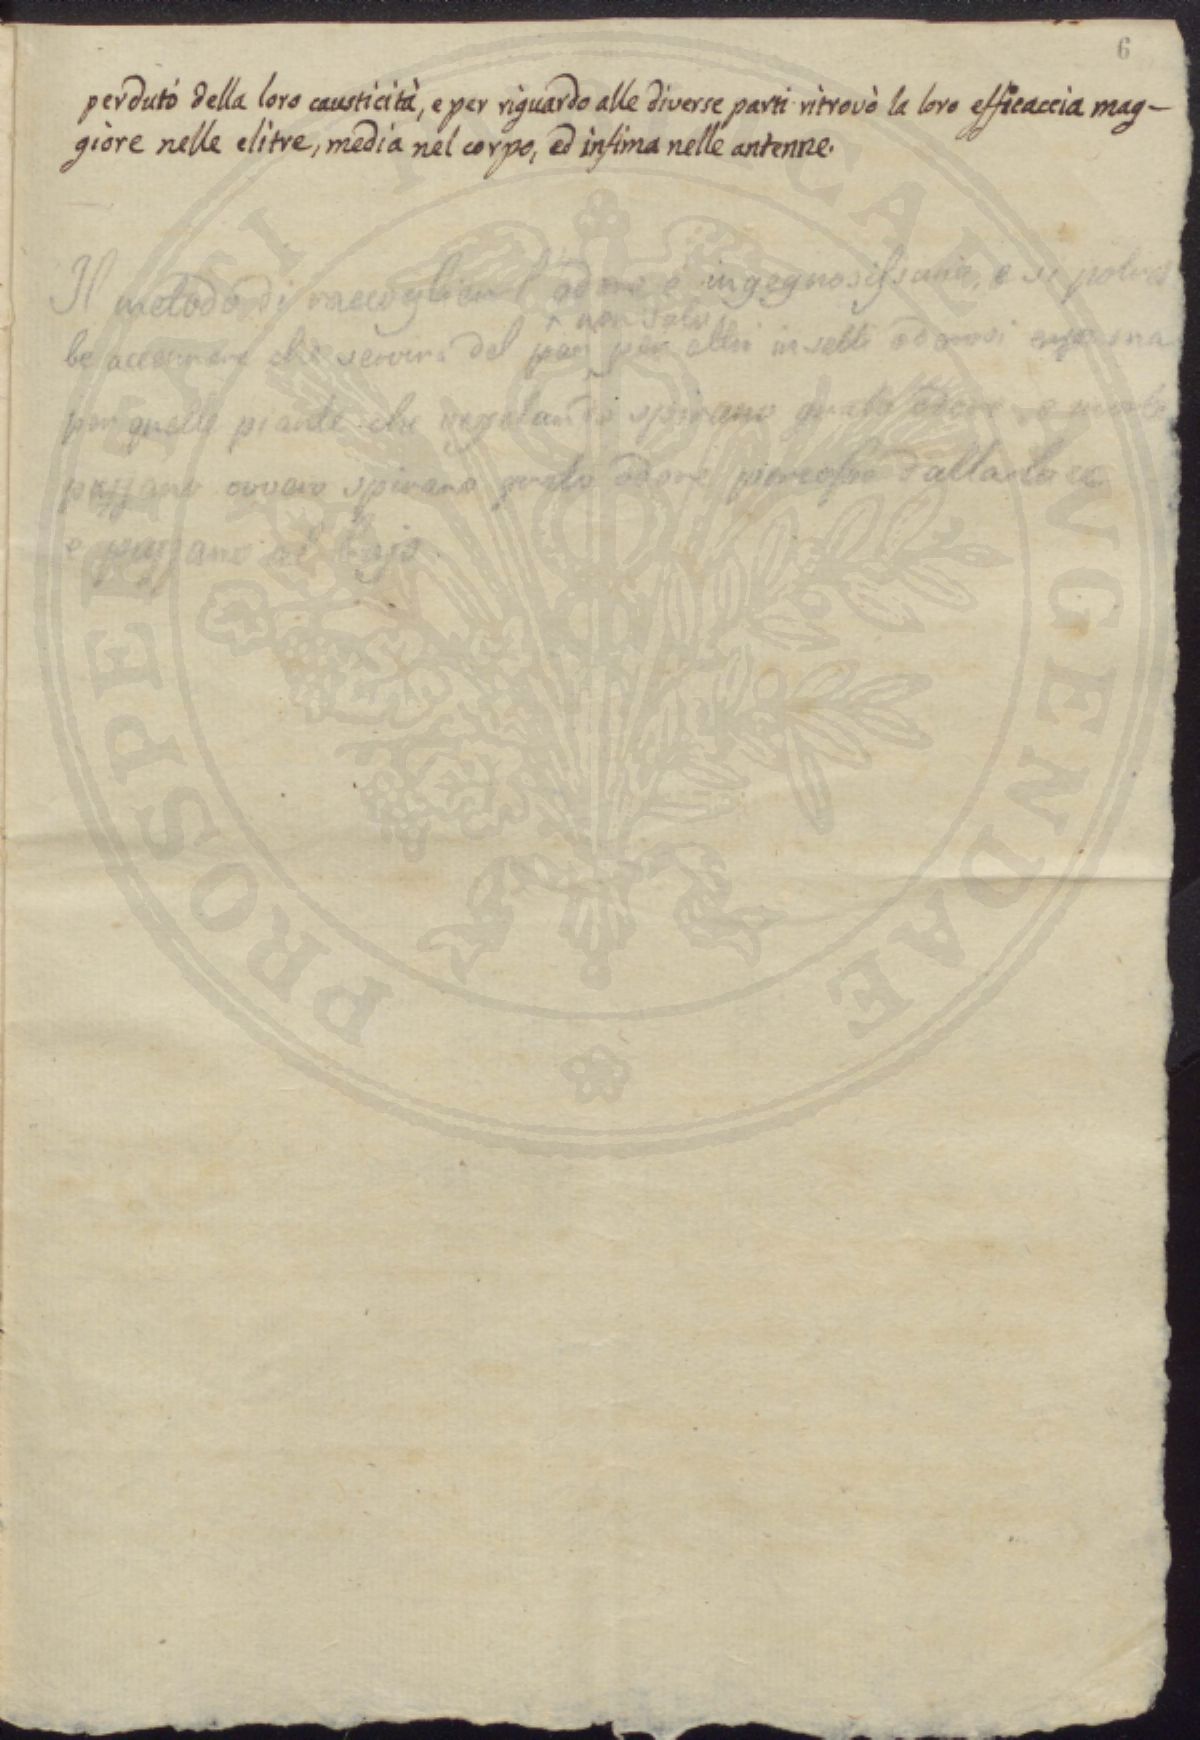 6
perduto della loro causticità, e per riguardo alle diverse parti ritrovò la loro efficaccia mag-
giore nelle elitre, media nel corpo, ed infima nelle antenne.
Il metodo di raccoglier l'odore è ingegnosissimo, e si potreb
non solo
be accennare che servirà del pari per altri insetti odorosi
per quelle piante che vegetando spirano grato odore e morte
puzzano ovvero spirano grato odore dalla
e puzzano
PROSPERITATI PUBLICAE AUGENDAE